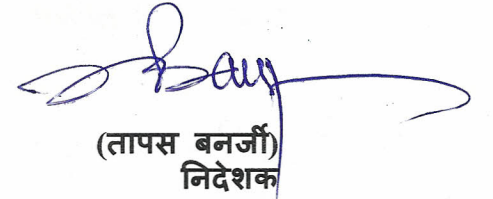 (तापस बनर्जी)
निदेशक